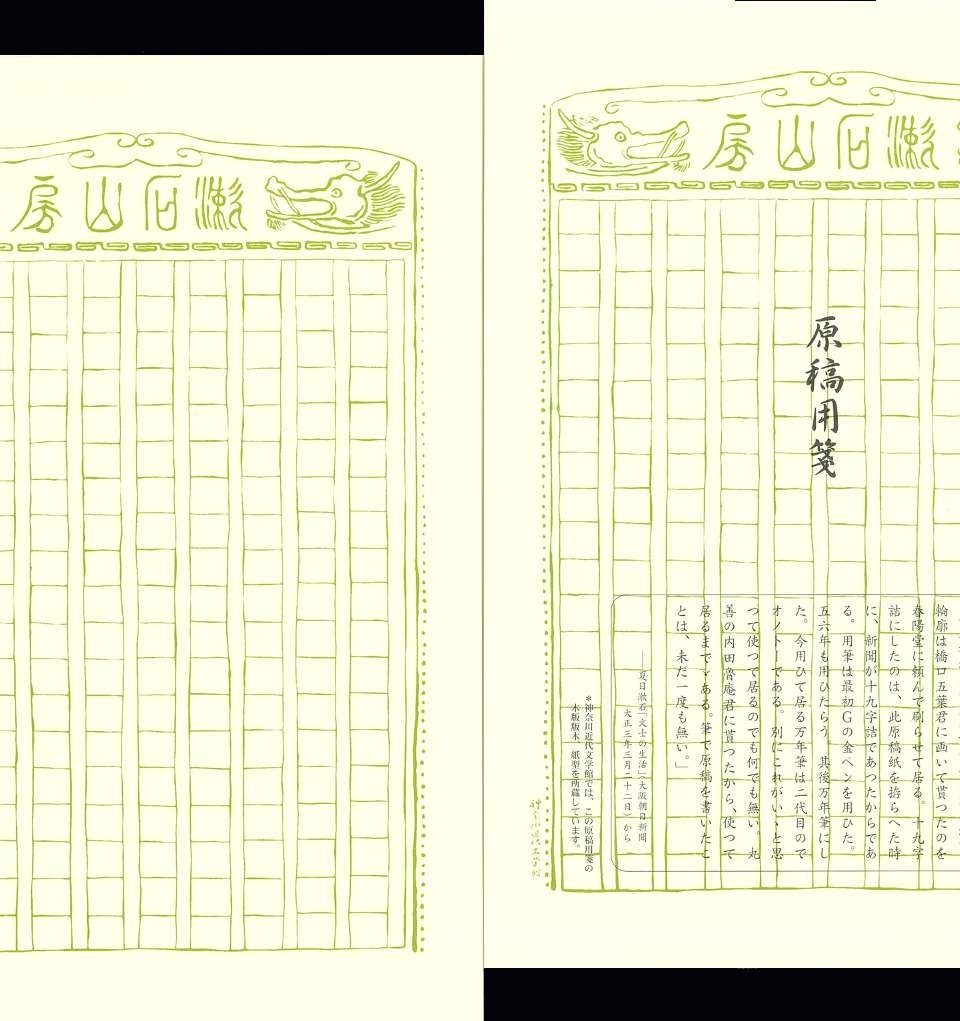 漱石山房
原稿用箋
輪廓は橋口五葉君に画いて貰つたのを
春陽堂に頼んで刷らせて居る。十九字
詰にしたのは、此原稿紙を拵らへた時
に、新聞が十九字詰であつたからであ
る。用筆は最初Gの金ペンを用ひた。
五六年も用ひたらう。其後万年筆にし
た。今用ひて居る万年筆は二代目ので
オノトーである。別にこれがいゝと思
つて使つて居るのでも何でも無い。丸
善の内田魯庵君に貰つたから、使つて
居るまでゞある。筆で原稿を書いたこ
とは、未だ一度も無い。」
――夏目漱石「文士の生活」(大阪朝日新聞
大正三年三月二十二日)から
＊神奈川近代文学館では、この原稿用箋の
木版版木、紙型を所蔵しています。
神奈川近代文学館
漱石山房